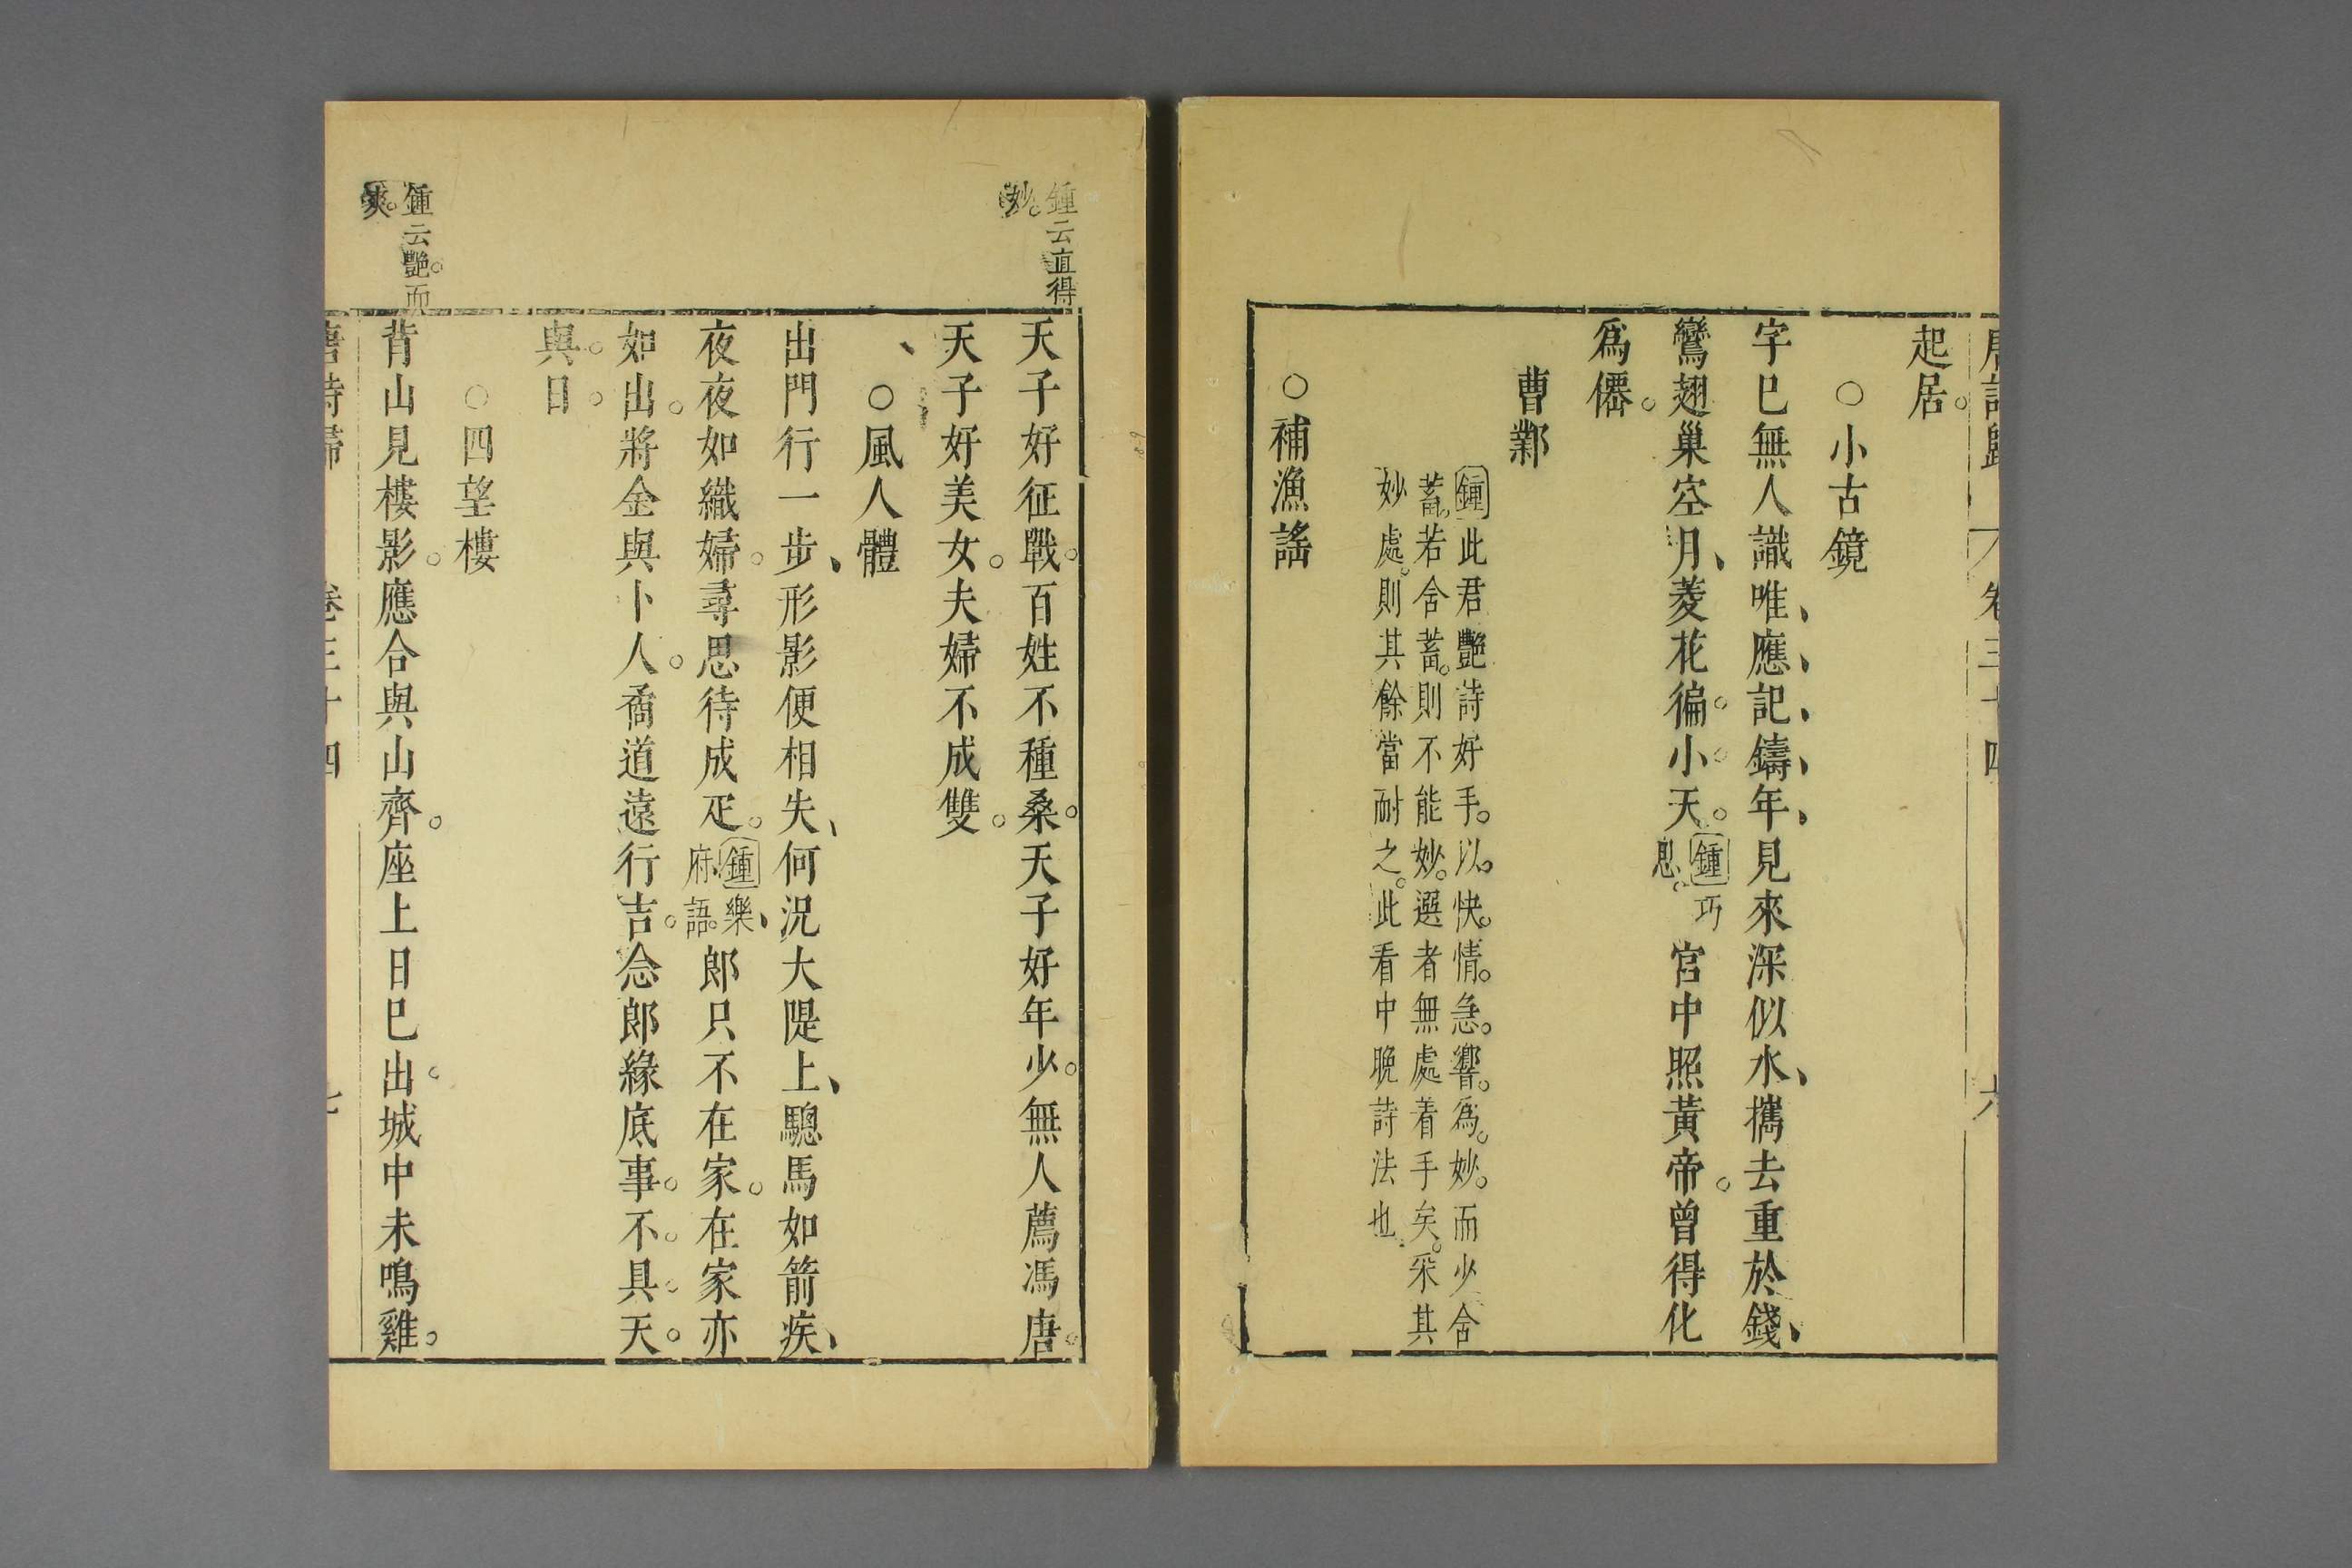 唐詩歸 卷三十四 六
起居。
○小古鏡
字已無人識唯應記鑄年見來深似水攜去重於錢
鸞翅巢空月菱花徧小天。鍾巧思。宮中照黃帝。曾得化
爲僊。
曹鄴
鍾此君艷詩好手。以快。情。急。響。爲。妙。而少含
蓄。若含蓄。則不能妙。選者無處着手矣。采其
妙處。則其餘當耐之。此看中晚詩法也
○補漁謠
鍾云直得
妙。
天子好征戰。百姓不種桑。天子好年少。無人薦馮唐。
天子好美女。夫婦不成雙。
○風人體
出門行一步形影便相失何況大隄上驄馬如箭疾
夜夜如織婦。尋思待成疋。鍾樂府語。郎只不在家。在家亦
如出。將金與卜人。矞道遠行吉。念郎緣底事。不。具。天。
與。日。
○四望樓
鍾云艷。而
爽。
背山見樓影。應合與山齊。座上日已出。城中未鳴雞。
唐詩歸 卷三十四 七